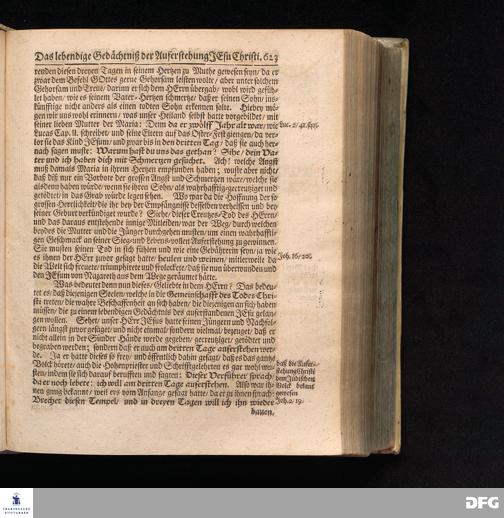 Das lebendige Gedächtniß der Auferstehung JEsu Christi. 623
renden diesen dreyen Tagen in seinem Hertzen zu Muthe gewesen seyn/ da er
zwar dem Befehl GOttes gerne Gehorsam leisten wolte / aber unter solchem
Gehorsam und Treu/ darinn er sich dem HErrn übergab/ wohl wird gefüh-
let haben/ wie es seinem Vater-Hertzen schmertze/ daß er seinen Sohn/ ins-
künfftige nicht anders als einen todten Sohn erkennen solte. Hiebey mö-
gen wir uns wohl erinnern/ was unser Heiland selbst hatte vorgebildet/ mit
seiner lieben Mutter der Maria: Denn da er zwölff Jahr alt war/ wie
Lucas Cap. II. schreibet/ und seine Eltern auf das Oster-Fest giengen/ da ver-
lor sie das Kind JEsum/ und zwar bis in den dritten Tag/ daß sie auch her-
nach sagen muste: Warum hast du uns das gethan? Sihe/ dein Va-
ter und ich haben dich mit Schmertzen gesuchet. Ach! welche Angst
muß damals Maria in ihrem Hertzen empfunden haben; wuste aber nicht/
daß diß nur ein Vorbote der grossen Angst und Schmertzen wäre/ welche sie
alsdenn haben würde/ wenn sie ihren Sohn/ als wahrhafftig gecreutziget und
getödtet/ in das Grab würde legen sehen. Wo war da die Hoffnung der so
grossen Herrlichkeit/ die ihr bey der Empfängnisse desselben verheissen und bey
seiner Geburt verkündiget wurde? Siehe/ dieser Creutzes-Tod des HErrn/
und das daraus entstehende innige Mitleiden/ war der Weg/ durch welchen
beydes die Mutter und die Jünger durchgehen musten/ um einen wahrhaffti-
gen Geschmack an seiner Sieg- und Lebens-vollen Auferstehung zu gewinnen.
Sie musten seinen Tod in sich fühlen und wie eine Gebährerin seyn/ ja wie
es ihnen der HErr zuvor gesagt hatte/ heulen und weinen/ mitlerweile da
die Welt sich freuete/ triumphirete und frolockete/ daß sie nun überwunden und
den JEsum von Nagareth aus dem Wege geräumet hätte.
Was bedeutet denn nun dieses/ Geliebte in dem HErrn? Das bedeu-
tet es/ daß diejenigen Seelen/ welche in die Gemeinschafft des Todes Chri-
sti treten/ die wahre Beschaffenheit an sich haben/ die diejenigen an sich haben
müssen/ die zu einem lebendigen Gedächtniß des auferstandenen JEsu gelan-
gen wollen. Sehet/ unser HErr JEsus hatte seinen Jüngern und Nachfol-
gern längst zuvor gesaget/ und nicht einmal/ sondern vielmal/ bezeuget/ daß er
nicht allein in der Sünder Hände werde gegeben/ gecreutziget/ getödtet und
begraben werden; sondern daß er auch am dritten Tage auferstehen wer-
de. Ja er hatte dieses so frey/ und öffentlich dahin gesagt/ daß es das gantze
Volck hörete/ auch die Hohenpriester und Schrifftgelehrten es gar wohl wus-
sten/ indem sie sich darauf berufften und sagten: Dieser Verführer sprach/
da er noch lebete: ich will am dritten Tage auferstehen. Also war ih-
nen gnug bekannt/ weil ers vom Anfange gesaget hatte/ da er zu ihnen sprach:
Brechet diesen Tempel/ und in dreyen Tagen will ich ihn wieder
bauen,
Luc. 2/ 42. seqq.
Joh. 16/ 20.
daß die Aufer-
stehung Christi
dem Jüdischen
Volck bekant
gewesen
Joh. 2/ 19.
FRANCKESCHE
STIFTUNGEN
DFG